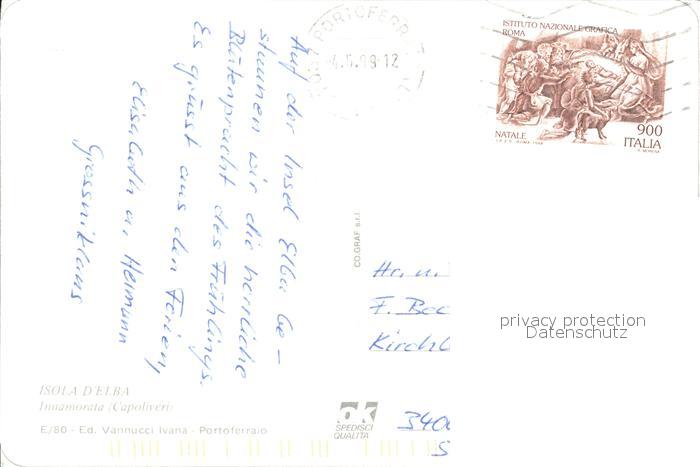 Auf der Insel Elba be-
staunen wir die herrliche
Blütenpracht des Frühlings.
Es grüsst aus den Ferien,
Elisabeth u. Hermann
Grossniklaus
PORTOFERR
4.5.99-12
ISTITUTO NAZIONALE GRAFICA
ROMA
900
NATALE
ITALIA
I.P.Z.S. ROMA 1998
CO.GRAF s.r.l.
Hr. u.
F. Boc
Kirchb
privacy protection
Datenschutz
3400
S
ISOLA D'ELBA
Innamorata (Capoliveri)
E/80 - Ed. Vannucci Ivana - Portoferraio
ok
SPEDISCI
QUALITÀ